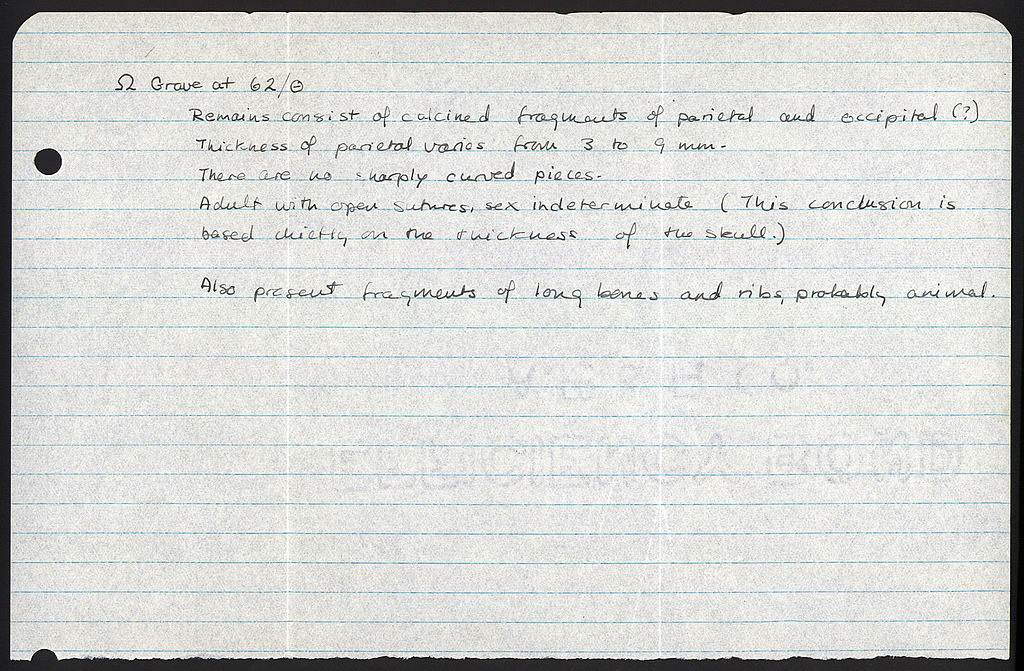 Ω Grave at 62/Θ
Remains consist of calcined fragments of parietal and occipital (?)
Thickness of parietal varies from 3 to 9 mm.
There are no sharply curved pieces.
Adult with open sutures, sex indeterminate (This conclusion is
based chiefly on the thickness of the skull.)
Also present fragments of long bones and ribs, probably animal.